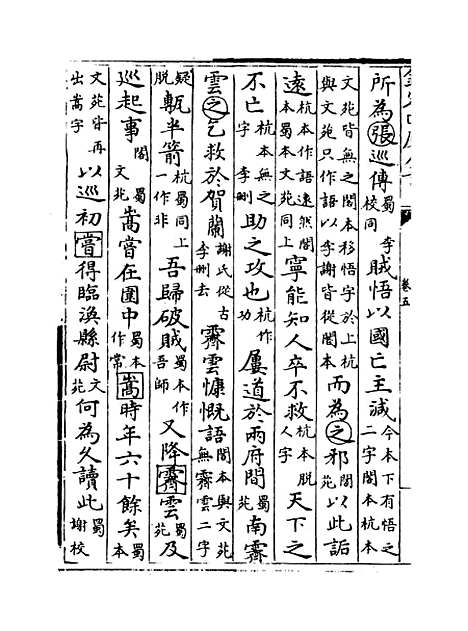 所為張巡傳蜀李校同賊悟以國亡主滅今本下有悟之二字閣本杭本
文苑皆無之閣本移悟字於上杭與文苑只作語以李謝皆從閣本而為之邪閣苑以此詬
遠杭本作語遠然閣本蜀本文苑同上寧能知人卒不救杭本脱人字天下之
不亡杭本無之字李刪助之攻也杭作功屢道於兩府間蜀苑南霽
雲之乞救於賀蘭謝氏從古李刪去霽雲慷慨語閣本與文苑無霽雲二字
疑脱甎半箭杭蜀同上一作非吾歸破賊蜀本作吾師又降霽雲蜀苑及
巡起事閣蜀文苑嵩嘗在圍中蜀本作常嵩時年六十餘矣蜀本
文苑皆再出嵩字以巡初嘗得臨渙縣尉文苑何為久讀此蜀謝校
卷五